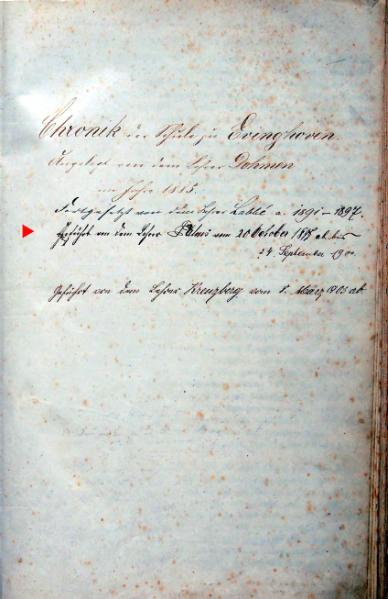 Chronik der Schule zu Evinghoven
Angelegt von dem Lehrer Dohmen
im Jahre 1885.
Fortgesetzt von dem Lehrer Labbé a. 1891 – 1897.
Geführt von dem Lehrer vom 20 October ab bis
24. September
Geführt von dem Lehrer Kreuzberg vom 1. März 1905 ab.